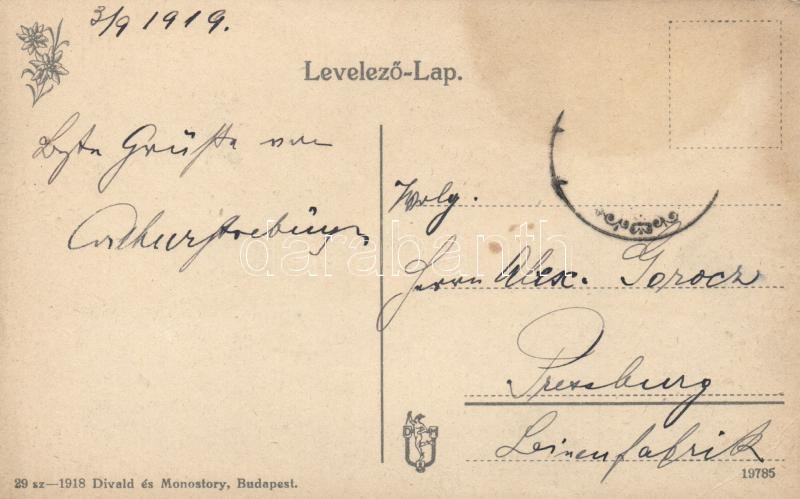 3/9 1919.
Levelező-Lap.
Beste Grüße von
Wolg.
Herrn Alex. Gorocz
Pressburg
Leinenfabrik
D M
29 sz—1918 Divald és Monostory, Budapest.
19785
darabanth